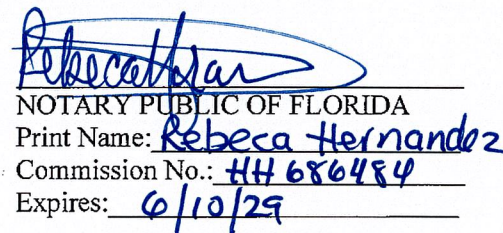 NOTARY PUBLIC OF FLORIDA
Print Name: Rebeca Hernandez
Commission No.: HH 686484
Expires: 6/10/29